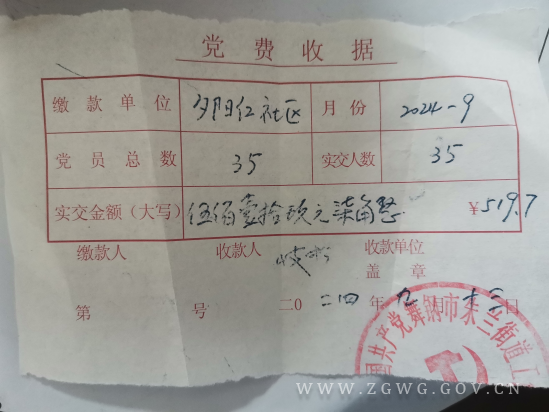 党费收据
缴款单位 夕阳红社区 月份 2024-9
党员总数 35 实交人数 35
实交金额(大写) 伍佰壹拾玖元柒角整 ¥519.7
缴款人 收款人 收款单位
盖章
第 号 二0二四年九月十 日
国共产党舞钢市朱兰街道工
WWW.ZGWG.GOV.CN